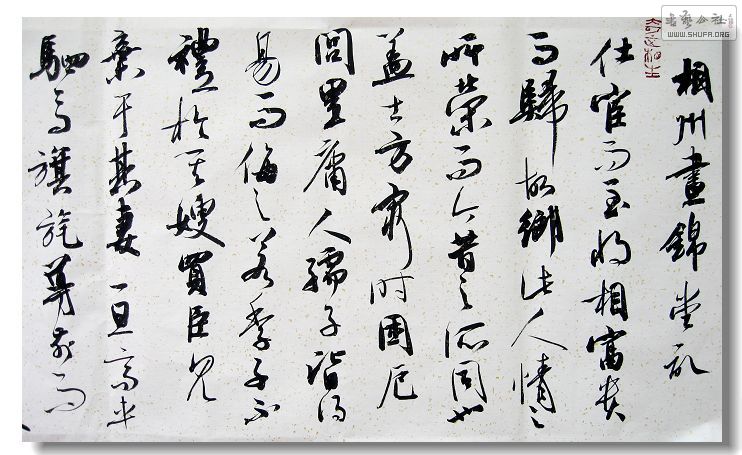 相州晝錦堂記
仕宦而至將相富貴
而歸故鄉此人情之
所榮而今昔之所同也
蓋士方窮時困厄
閭里庸人孺子皆得
易而侮之若季子不
禮於其嫂買臣見
棄于其妻一旦高車
駟馬旗旄導前而
书艺公社
WWW.SHUFA.ORG